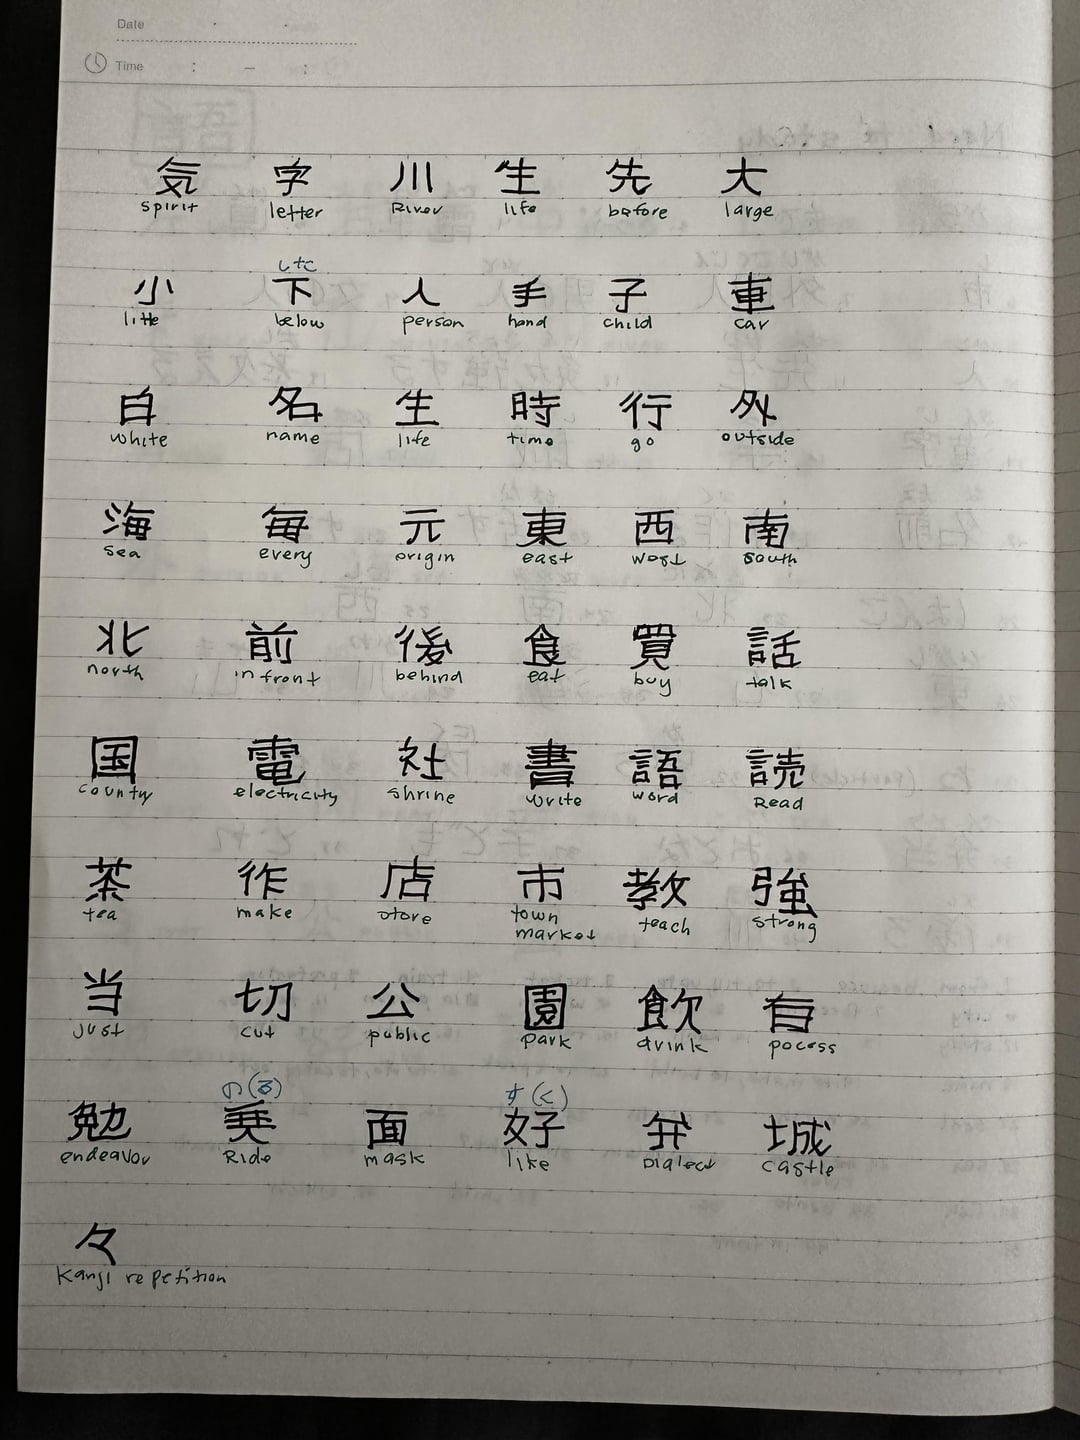 Date
Time : - :
気 字 川 生 先 大
spirit letter River life before large
した
小 下 人 手 子 車
litte below person hand child car
白 名 生 時 行 外
white name life time go outside
海 毎 元 東 西 南
sea every origin east west south
北 前 後 食 買 話
north in front behind eat buy talk
国 電 社 書 語 読
country electricity shrine write word Read
茶 作 店 市 教 強
tea make store town market teach strong
当 切 公 園 飲 有
just cut public park drink pocess
の(る) す(く)
勉 乗 面 好 弁 城
endeavor Ride mask like Dialect castle
々
Kanji repetition